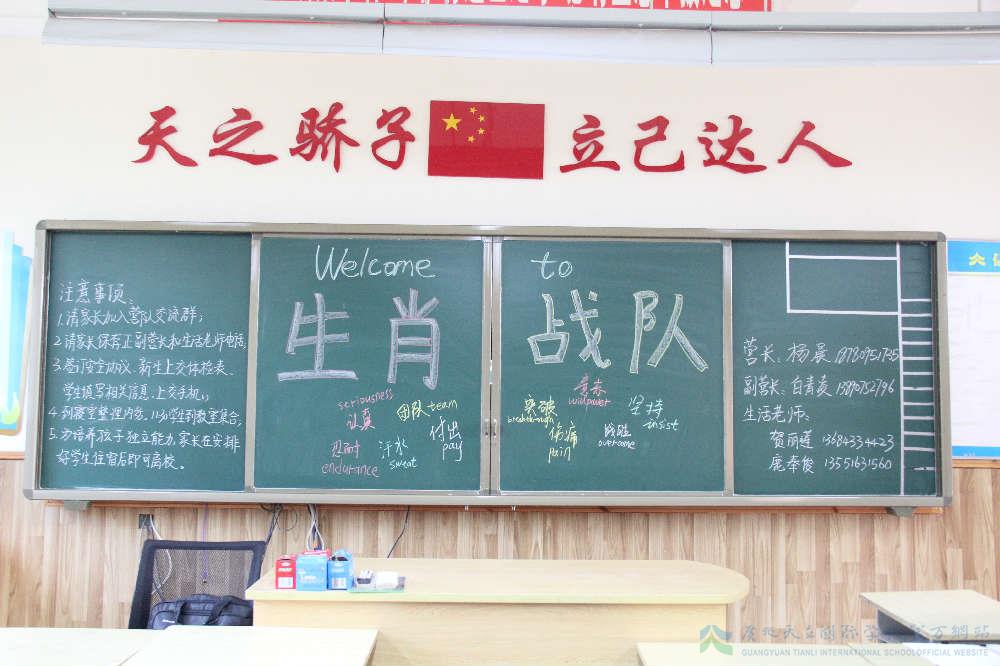 天之骄子 立己达人
Welcome to
生肖战队
注意事项:
1.请家长加入营队交流群;
2.请家长保存正副营长和生活老师电话;
3.签订安全协议、新生上交体检表、
学生填写相关信息、上交手机;
4.到寝室整理内务,11:30学生到教室集合;
5.为培养孩子独立能力,家长在安排
好学生住宿后即可离校。
seriousness
认真
团队 team
忍耐
endurance
汗水
sweat
付出
pay
突破
breakthrough
意志
willpower
伤痛
pain
战胜
overcome
坚持
insist
营长:杨晨
副营长:白青
生活老师:
贺丽莲 13684334423
庞奉俊 13551631560
GUANGYUAN TIANLI INTERNATIONAL SCHOOL OFFICIAL WEBSITE